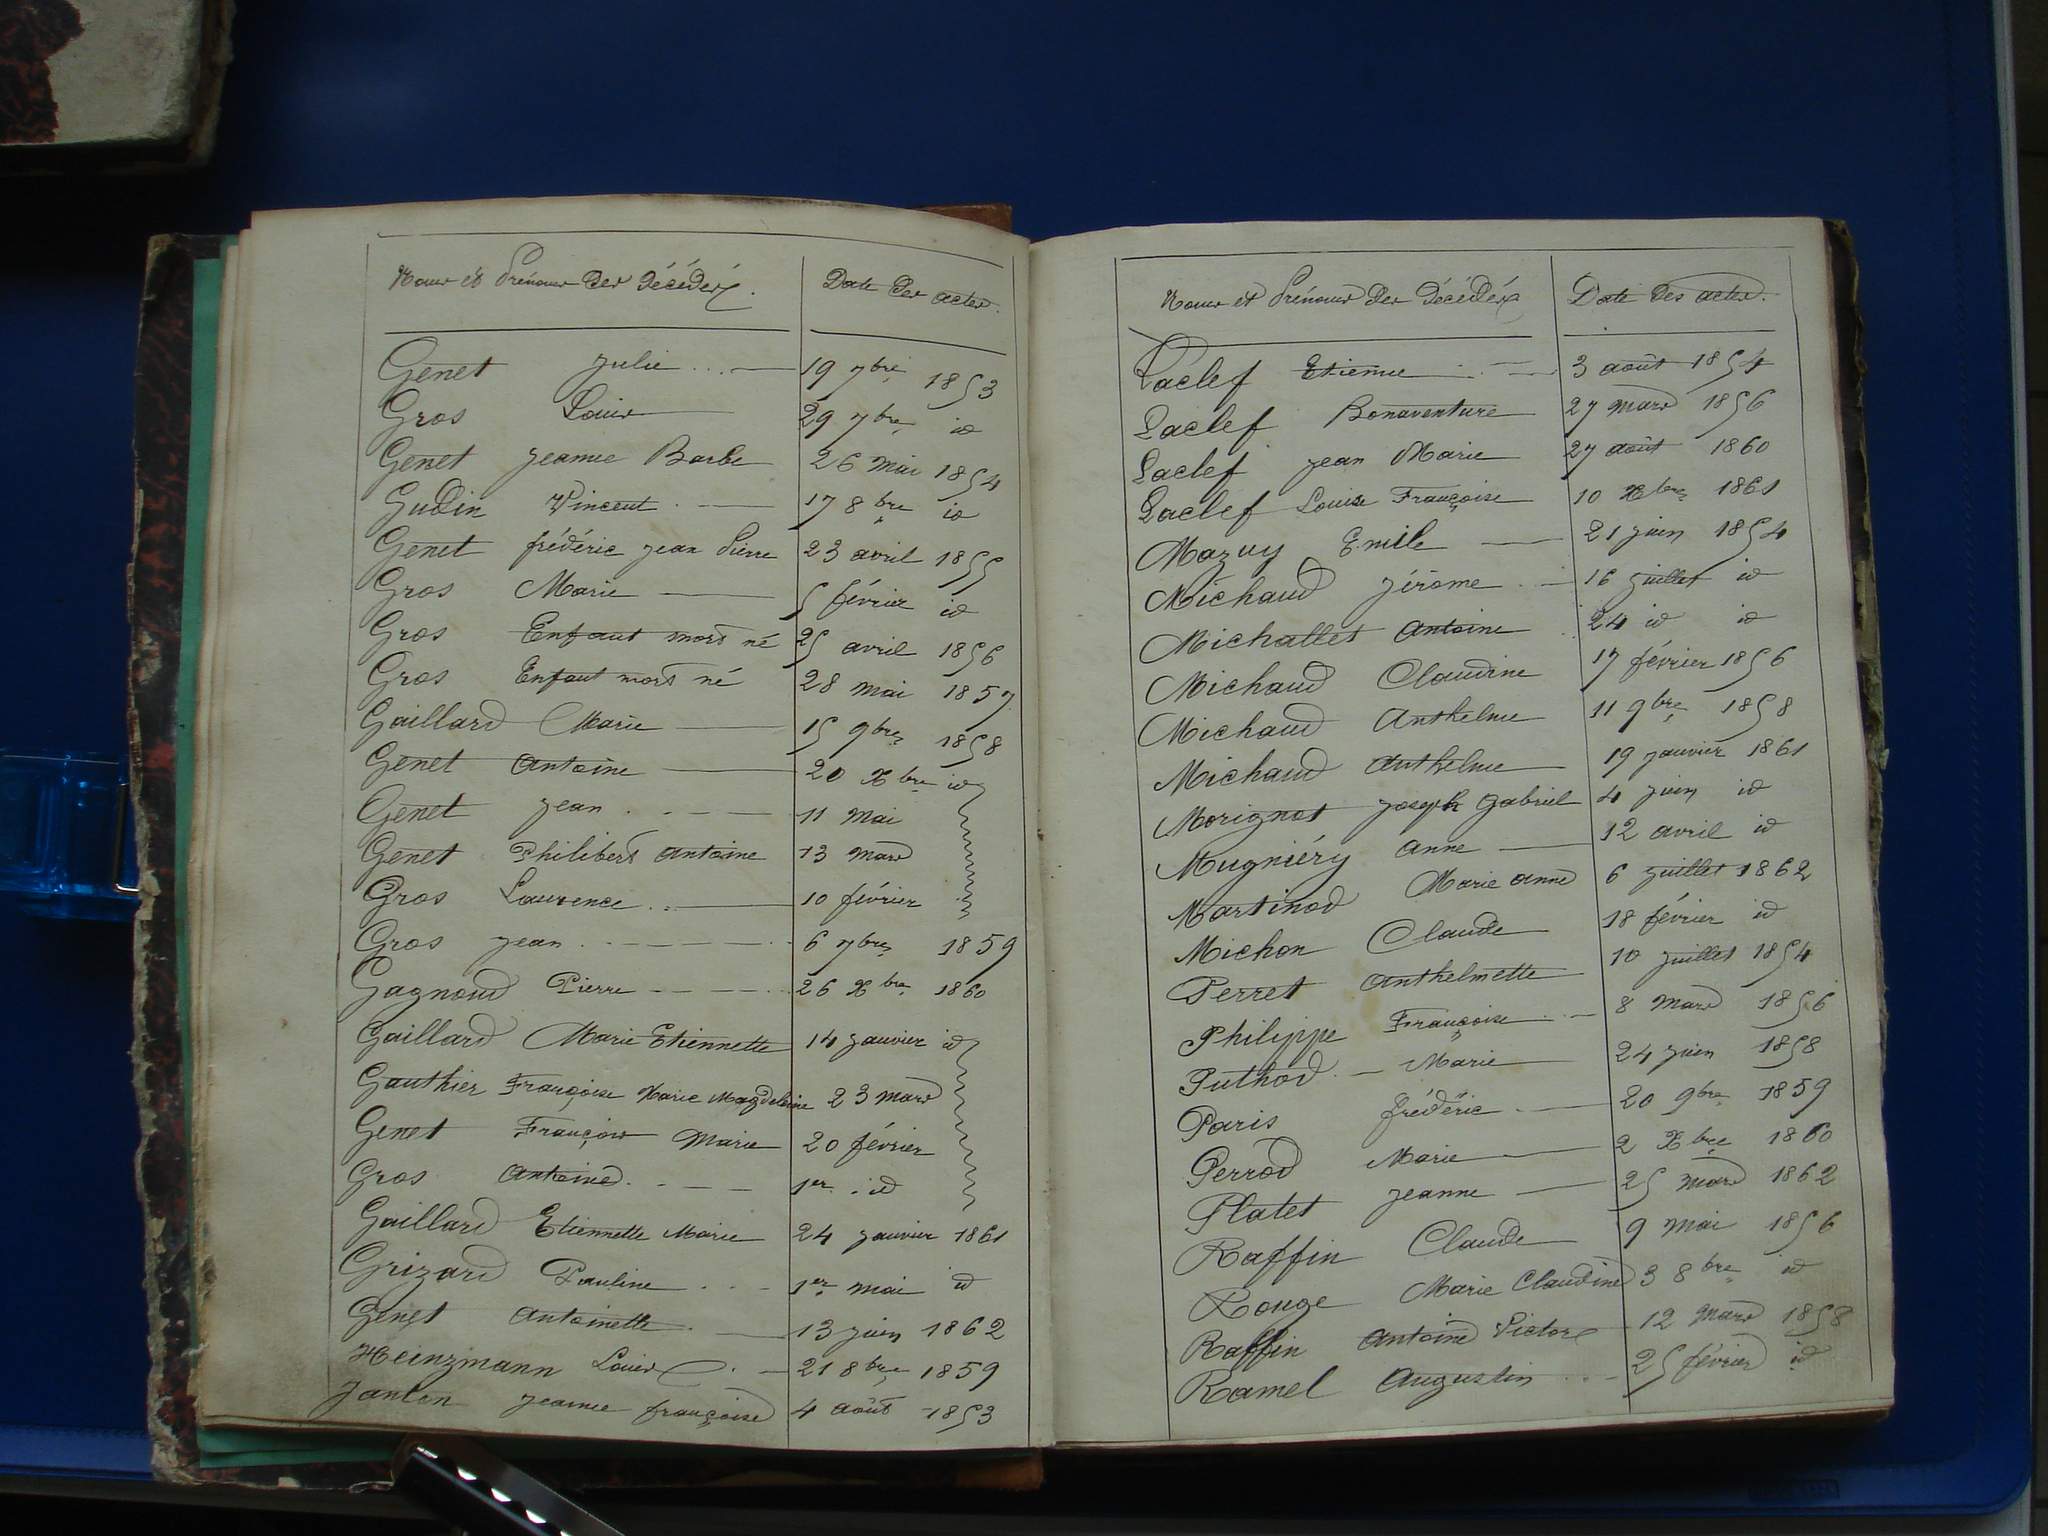 Noms et Prénoms des Décédés. Date des actes.
Genet Julie 19 7bre 1853
Gros Louis 29 7bre id
Genet Jeanne Barbe 26 Mai 1854
Gudin Vincent 17 8bre id
Genet frédéric Jean Pierre 23 avril 1855
Gros Marie 5 février id
Gros Enfant mort né 25 avril 1856
Gros Enfant mort né 28 Mai 1857
Gaillard Marie 15 9bre 1858
Genet Antoine 20 Xbre id
Genet Jean 11 Mai
Genet Philibert Antoine 13 Mars
Gros Laurence 10 février
Gros Jean 6 7bre 1859
Gagnoud Pierre 26 Xbre 1860
Gaillard Marie Etiennette 14 Janvier id
Gauthier Françoise Marie Magdeleine 23 Mars
Genet François Marie 20 février
Gros Antoine 1er id
Gaillard Etiennette Marie 24 Janvier 1861
Grizard Pauline 1er Mai id
Genet Antoinette 13 Juin 1862
Heinzmann Louis 21 8bre 1859
Janton Jeanne françoise 4 août 1853
Noms et Prénoms des Décédés Date des actes.
Laclef Etienne 3 août 1854
Laclef Bonaventure 27 Mars 1856
Laclef Jean Marie 27 août 1860
Laclef Louise Françoise 10 Xbre 1861
Mazuy Emile 21 Juin 1854
Michaud Jérôme 16 Juillet id
Michallet Antoine 24 id id
Michaud Claudine 17 février 1856
Michaud Anthelme 11 9bre 1858
Michaud Anthelme 19 Janvier 1861
Morignot Joseph Gabriel 4 Juin id
Mugniéry Anne 12 avril id
Martinod Marie Anne 6 Juillet 1862
Michon Claude 18 février id
Perret Anthelmette 10 Juillet 1854
Philippe Françoise 8 Mars 1856
Puthod Marie 24 Juin 1858
Paris frédéric 20 9bre 1859
Perrod Marie 2 Xbre 1860
Platet Jeanne 25 Mars 1862
Raffin Claude 9 Mai 1856
Rouge Marie Claudine 3 8bre id
Raffin Antoine Victor 12 Mars 1858
Ramel Augustin 25 février id